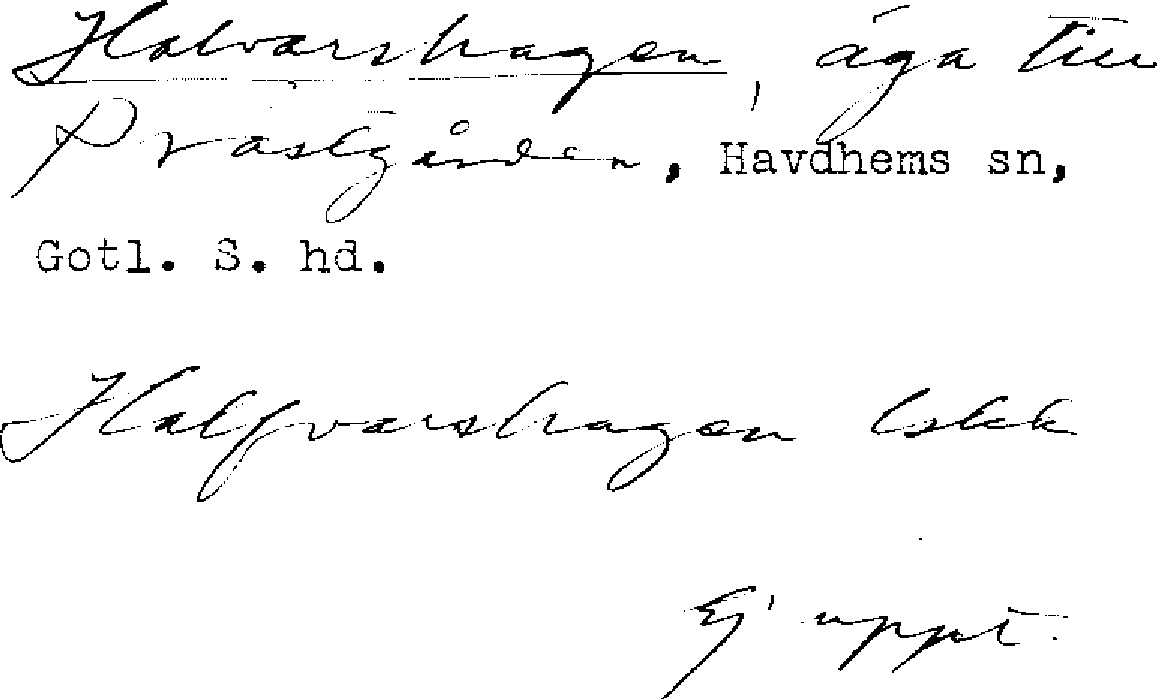 Halvarshagen, äga till
Prästgården, Havdhems sn,
Gotl. S. hd.
Halfvarshagen lskk
Ej uppt.